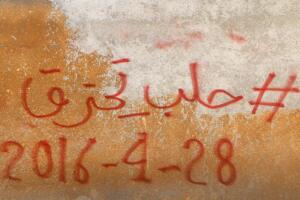 #حلب_تحترق
2016-4-28